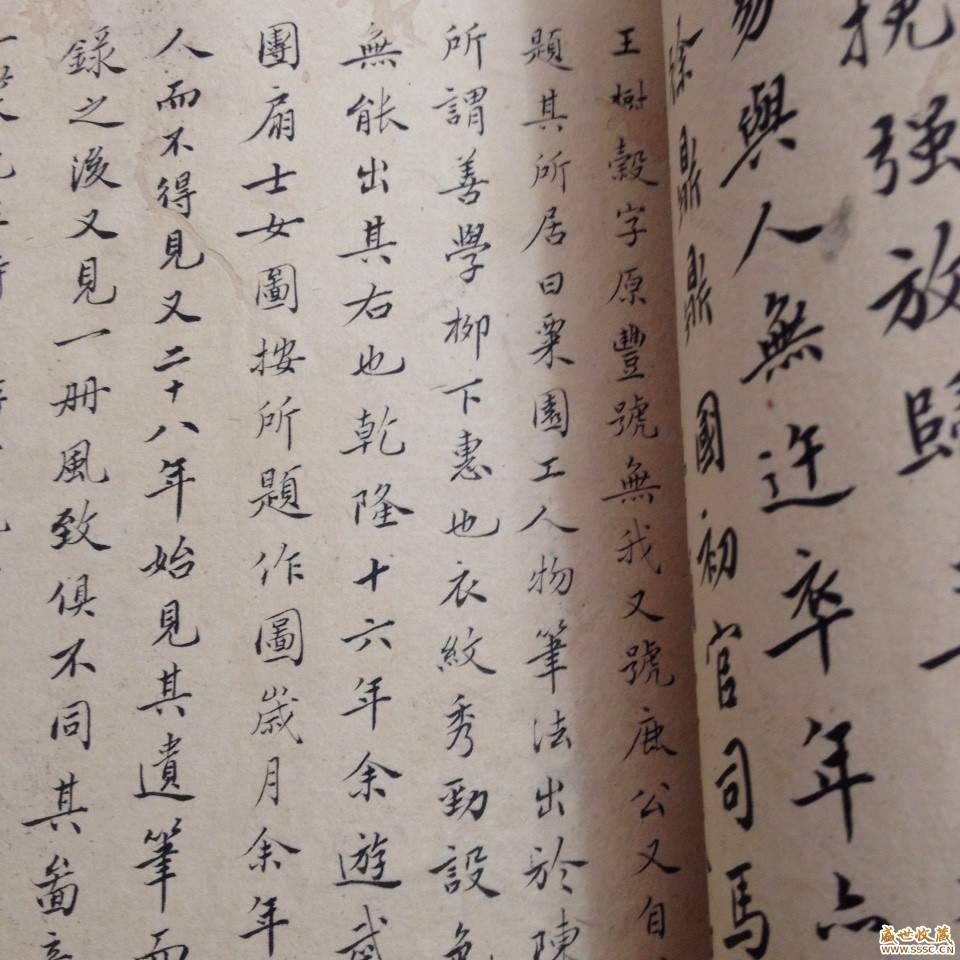 挽强放歸
易與人無迕卒年六
徐鼎鼎 國初官司馬
王樹穀字原豐號無我又號鹿公又自
題其所居曰栗園工人物筆法出於陳
所謂善學柳下惠也衣紋秀勁設色
無能出其右也乾隆十六年余遊武
團扇士女圖按所題作圖歲月余年
人而不得見又二十八年始見其遺筆而
錄之後又見一冊風致俱不同其畫
盛世收藏
www.SSSC.CN